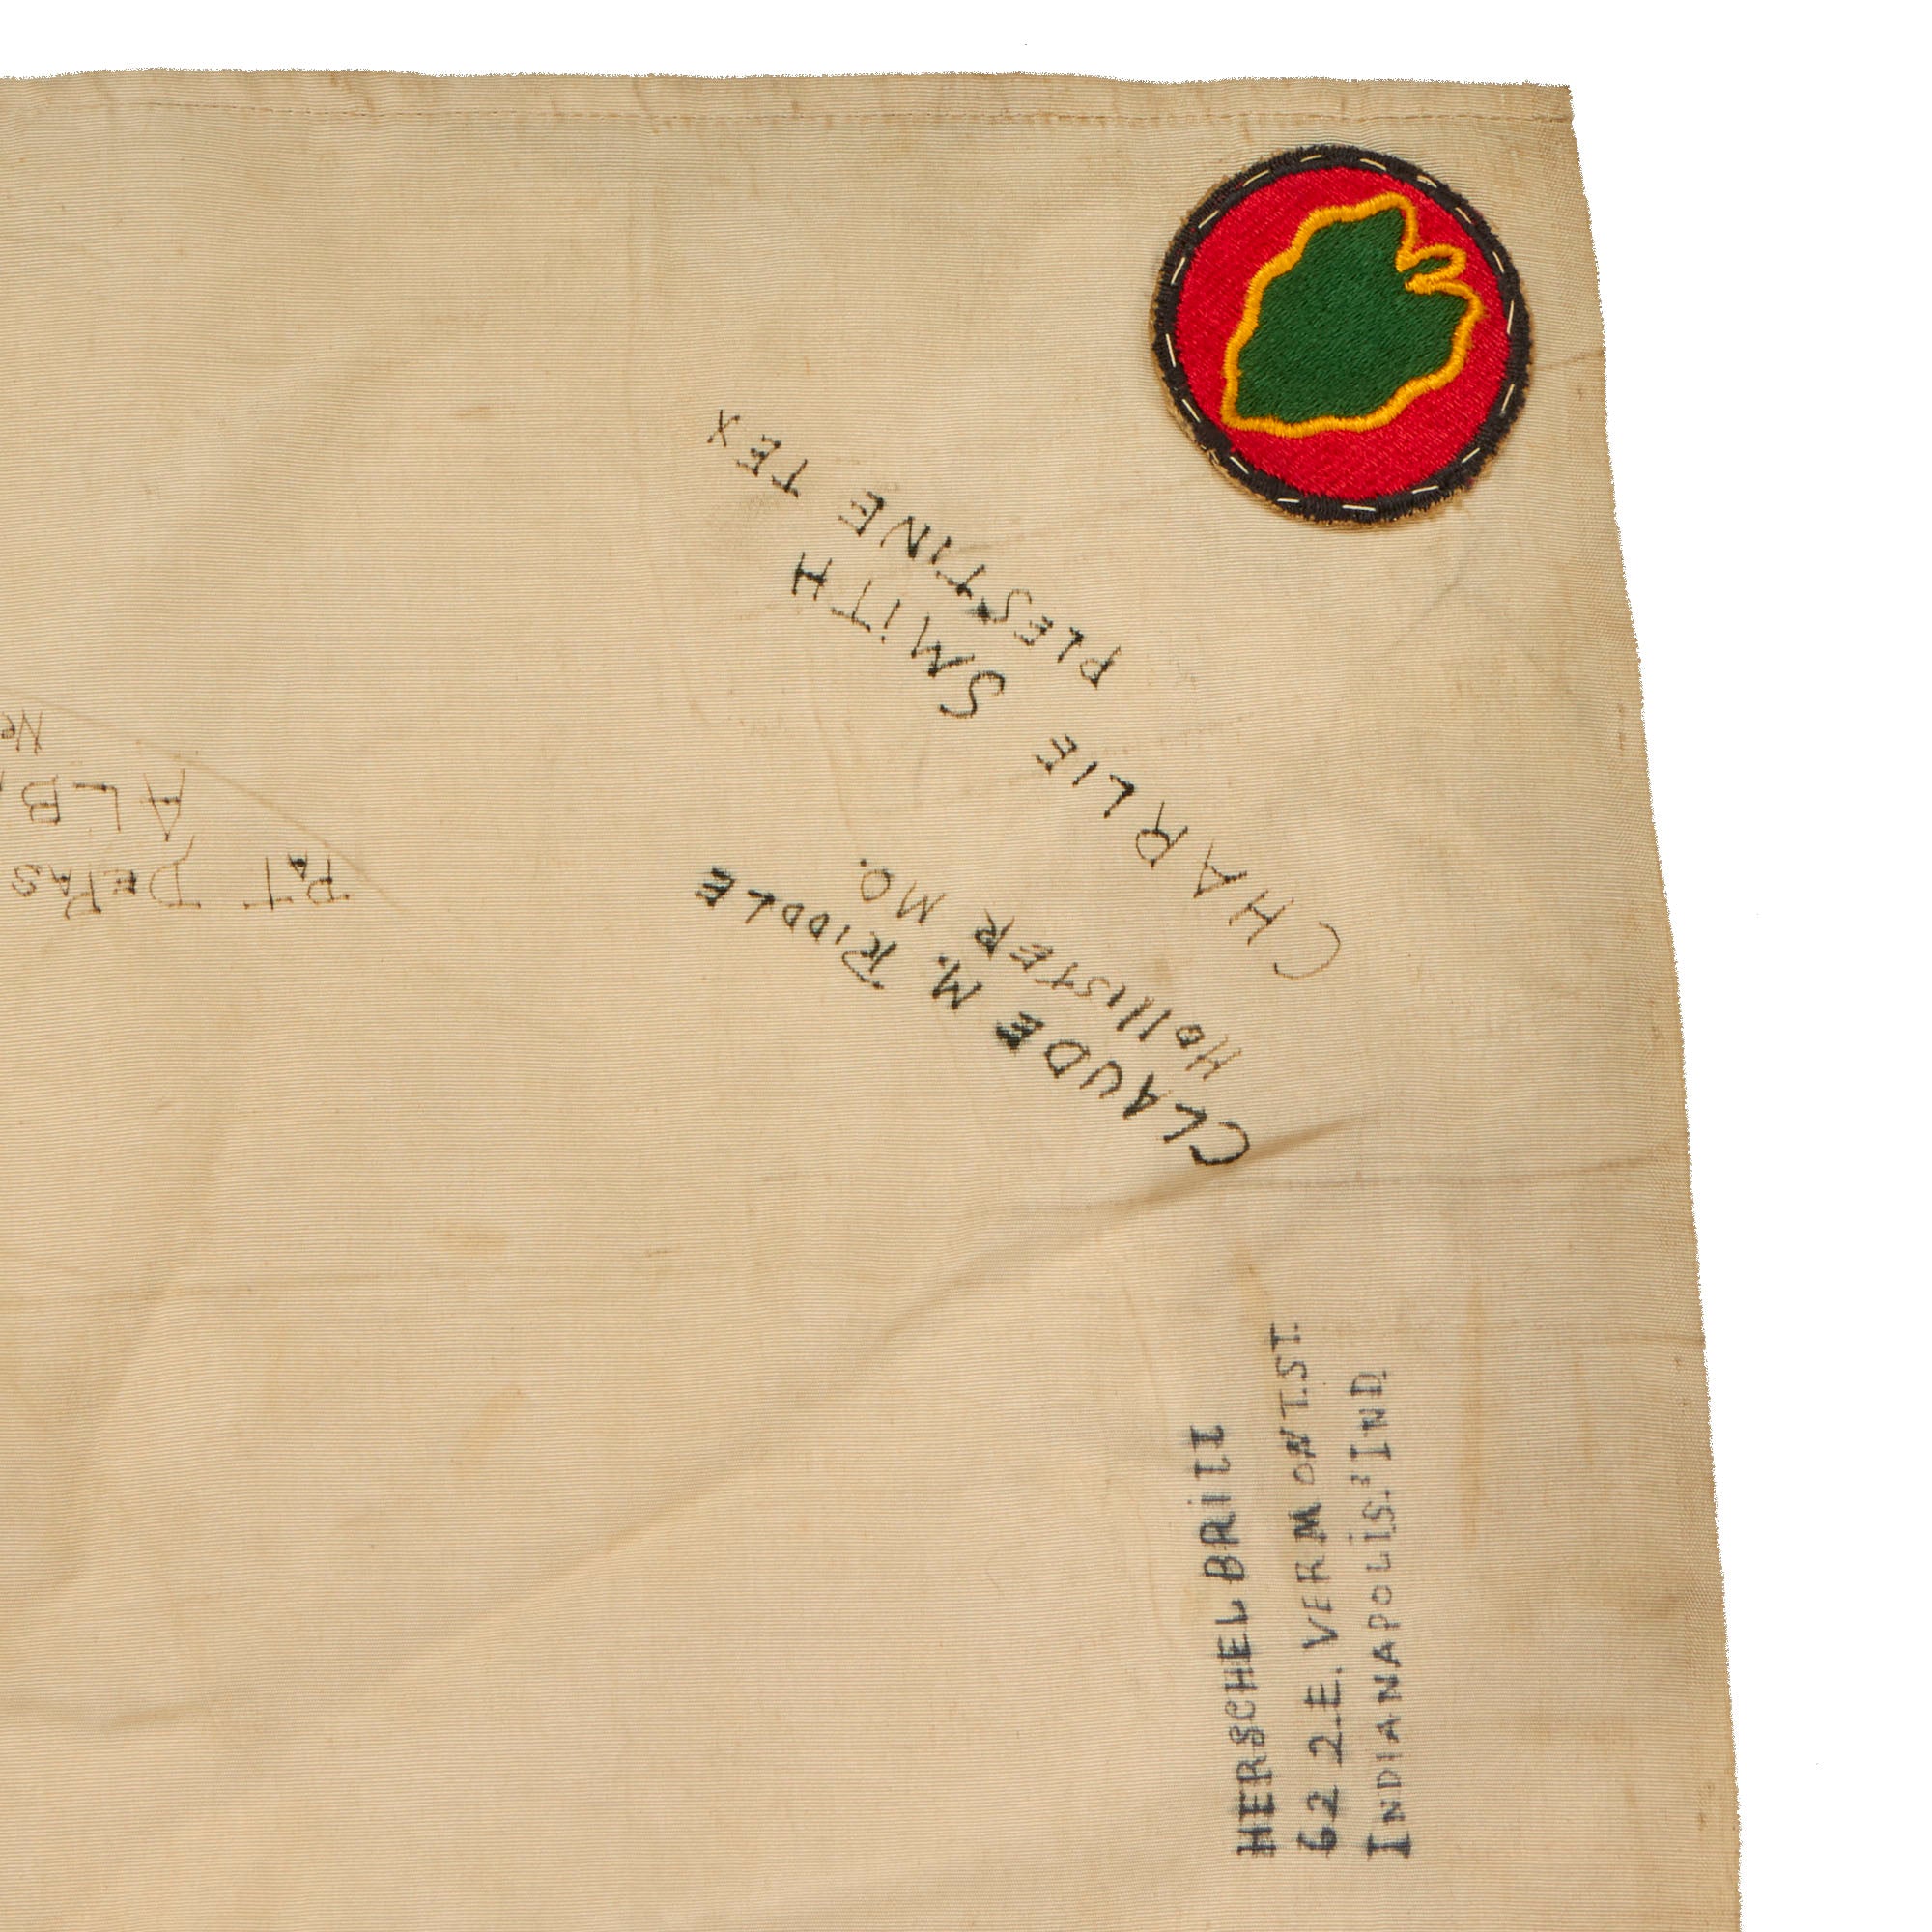 CHARLIE SMITH
PLESTINE TEX
CLAUDE M. RIDDLE
HOllISTER MO.
HERSCHEL BRILL
622.E. VERMONT.ST.
INDIANAPOLIS.'IND.
PAT